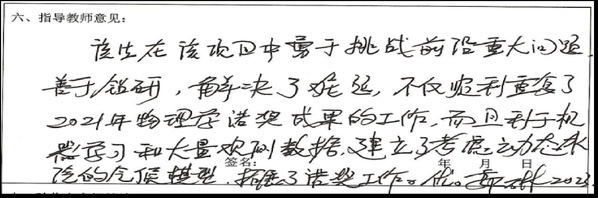 六、指导教师意见:
该生在该项目中勇于挑战前沿重大问题
善于钻研,解决了难题,不仅顺利重复了
2021年物理学诺奖成果的工作,而且利于机
器学习和大量观测数据,建立了考虑动力
的气候模型,拓展了诺奖工作。优。 2023
签名: 年 月 日